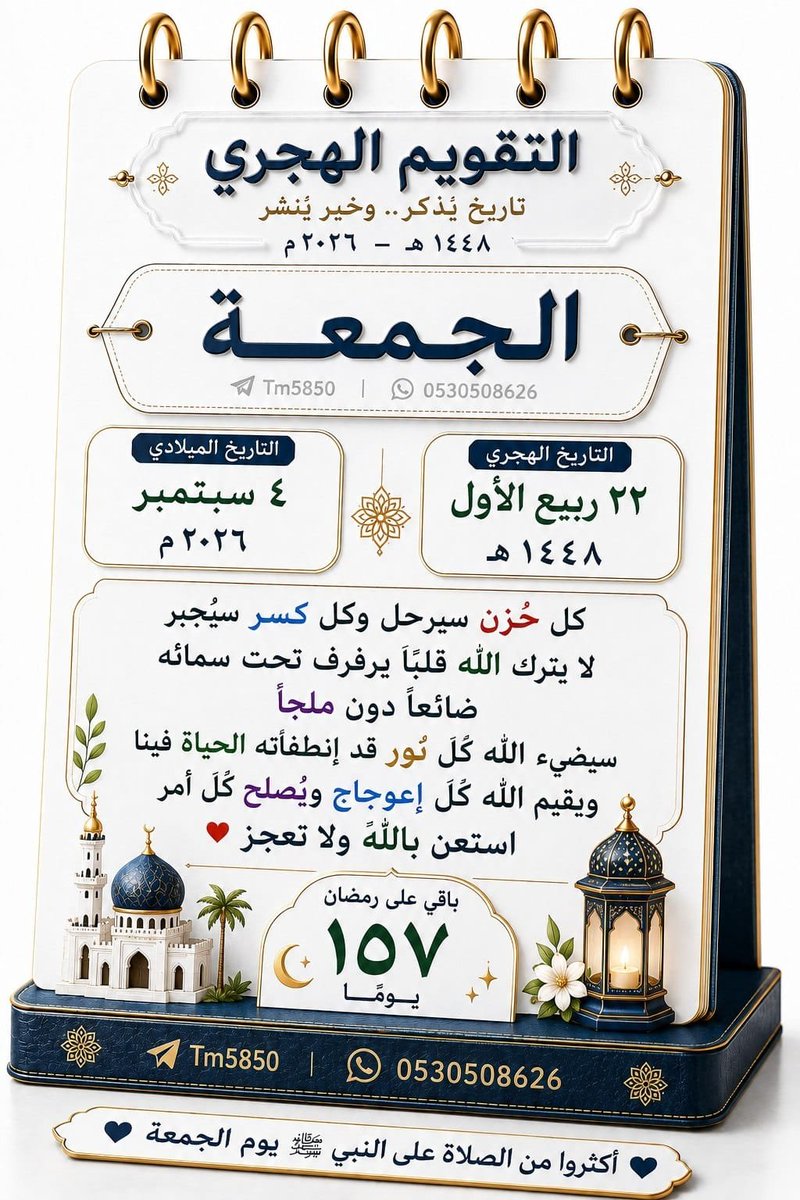 التقويم الهجري
تاريخ يُذكر.. وخير يُنشر
١٤٤٨ هـ – ٢٠٢٦ م
الجمعـــة
Tm5850 | 0530508626
التاريخ الهجري
٢٢ ربيع الأول
١٤٤٨ هـ
التاريخ الميلادي
٤ سبتمبر
٢٠٢٦ م
كل حُزن سيرحل وكل كسر سيُجبر
لا يترك الله قلبًاَ يرفرف تحت سمائه
ضائعاً دون ملجأ
سيضيء الله كَُلَ نُور قد إنطفأته الحياة فينا
ويقيم الله كَُلَ إعوجاج ويُصلح كَُلَ أمر
استعن باللهً ولا تعجز ♥
باقي على رمضان
١٥٧
يـومًـا
Tm5850 | 0530508626
♥ أكثروا من الصلاة على النبي ﷺ يوم الجمعة ♥